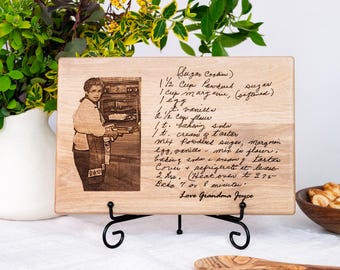 (Sugar Cookies)
1 1/2 Cup Powdered sugar
1 cup margarine, (softened)
1 egg
1 t. vanilla
2 1/2 cup flour
1 t. baking soda
1 t. cream of tarter
mix powdered sugar, margarine
egg, vanilla. mix in flour,
baking soda + cream of tarter
Cover + refrigerate at least
2 hrs. (Heat oven to 375
Bake 7 or 8 minutes.
Love Grandma Joyce